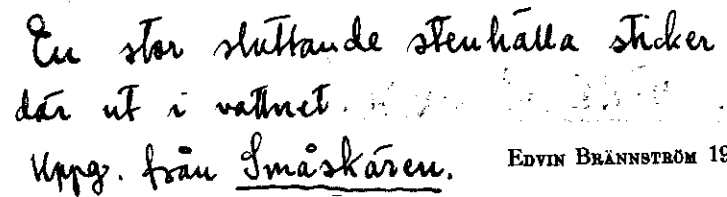 En stor sluttande stenhälla sticker
där ut i vattnet.
Uppg. från Småskären.
EDVIN BRÄNNSTRÖM 19